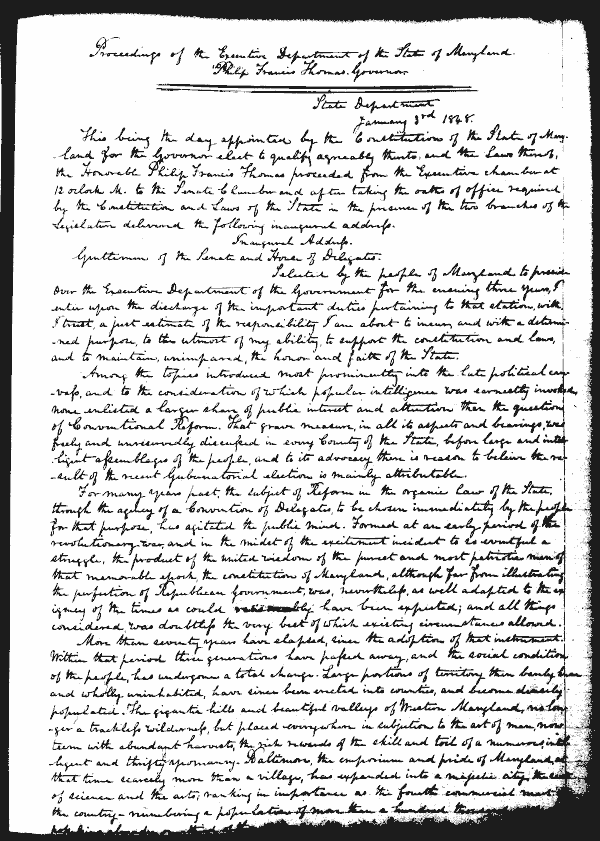 Proceedings of the Executive Department of the State of Maryland.
Philip Francis Thomas. Governor.
State Department
January 3rd 1848.
This being the day appointed by the Constitution of the State of Mary-
-land for the Governor elect to qualify agreeably thereto, and the Laws thereof,
the Honorable Philip Francis Thomas proceeded from the Executive chamber at
12 oclock M. to the Senate Chamber and after taking the oaths of office required
by the Constitution and Laws of the State in the presence of the two branches of the
Legislature delivered the following inaugural address.
Inaugural Address.
Gentlemen of the Senate and House of Delegates.
Selected by the people of Maryland to preside
over the Executive Department of the Government for the ensuing three years, I
enter upon the discharge of the important duties pertaining to that station, with,
I trust, a just estimate of the responsibility I am about to incur, and with a determi-
-ned purpose, to the utmost of my ability, to support the constitution and laws,
and to maintain, unimpaired, the honor and faith of the State.
Among the topics introduced most prominently into the late political can-
-vass, and to the consideration of which popular intelligence was earnestly invoked,
none enlisted a larger share of public interest and attention than the question
of Conventional Reform. That grave measure, in all its aspects and bearings, was
freely and unreservedly discussed in every County of the State, before large and intel-
-ligent assemblages of the people, and to its advocacy there is reason to believe the re-
-sult of the recent Gubernatorial election is mainly attributable.
For many years past, the subject of Reform in the organic law of the State,
through the agency of a Convention of Delegates, to be chosen immediately by the people
for that purpose, has agitated the public mind. Formed at an early period of the
revolutionary war, and in the midst of the excitement incident to so eventful a
struggle, the product of the united wisdom of the purest and most patriotic men of
that memorable epoch, the constitution of Maryland, although far from illustrating
the perfection of Republican Government, was, nevertheless, as well adapted to the ex
igency of the times as could have been expected; and all things
considered was doubtless the very best of which existing circumstances allowed.
More than seventy years have elapsed, since the adoption of that instrument.
Within that period three generations have passed away, and the social condition
of the people, has undergone a total change. Large portions of territory then barely known
and wholly uninhabited, have since been erected into counties, and become densely
populated. The gigantic hills and beautiful valleys of Western Maryland, no lon-
-ger a trackless wilderness, but placed everywhere in subjection to the art of man, now
teem with abundant harvests, the rich rewards of the skill and toil of a numerous, intel
ligent and thrifty yeomanry. Baltimore, the emporium and pride of Maryland, at
that time scarcely more than a village, has expanded into a majestic city, the seat
of science and the arts; ranking in importance as the fourth commercial mart
the country - numbering a population of more than a hundred thous